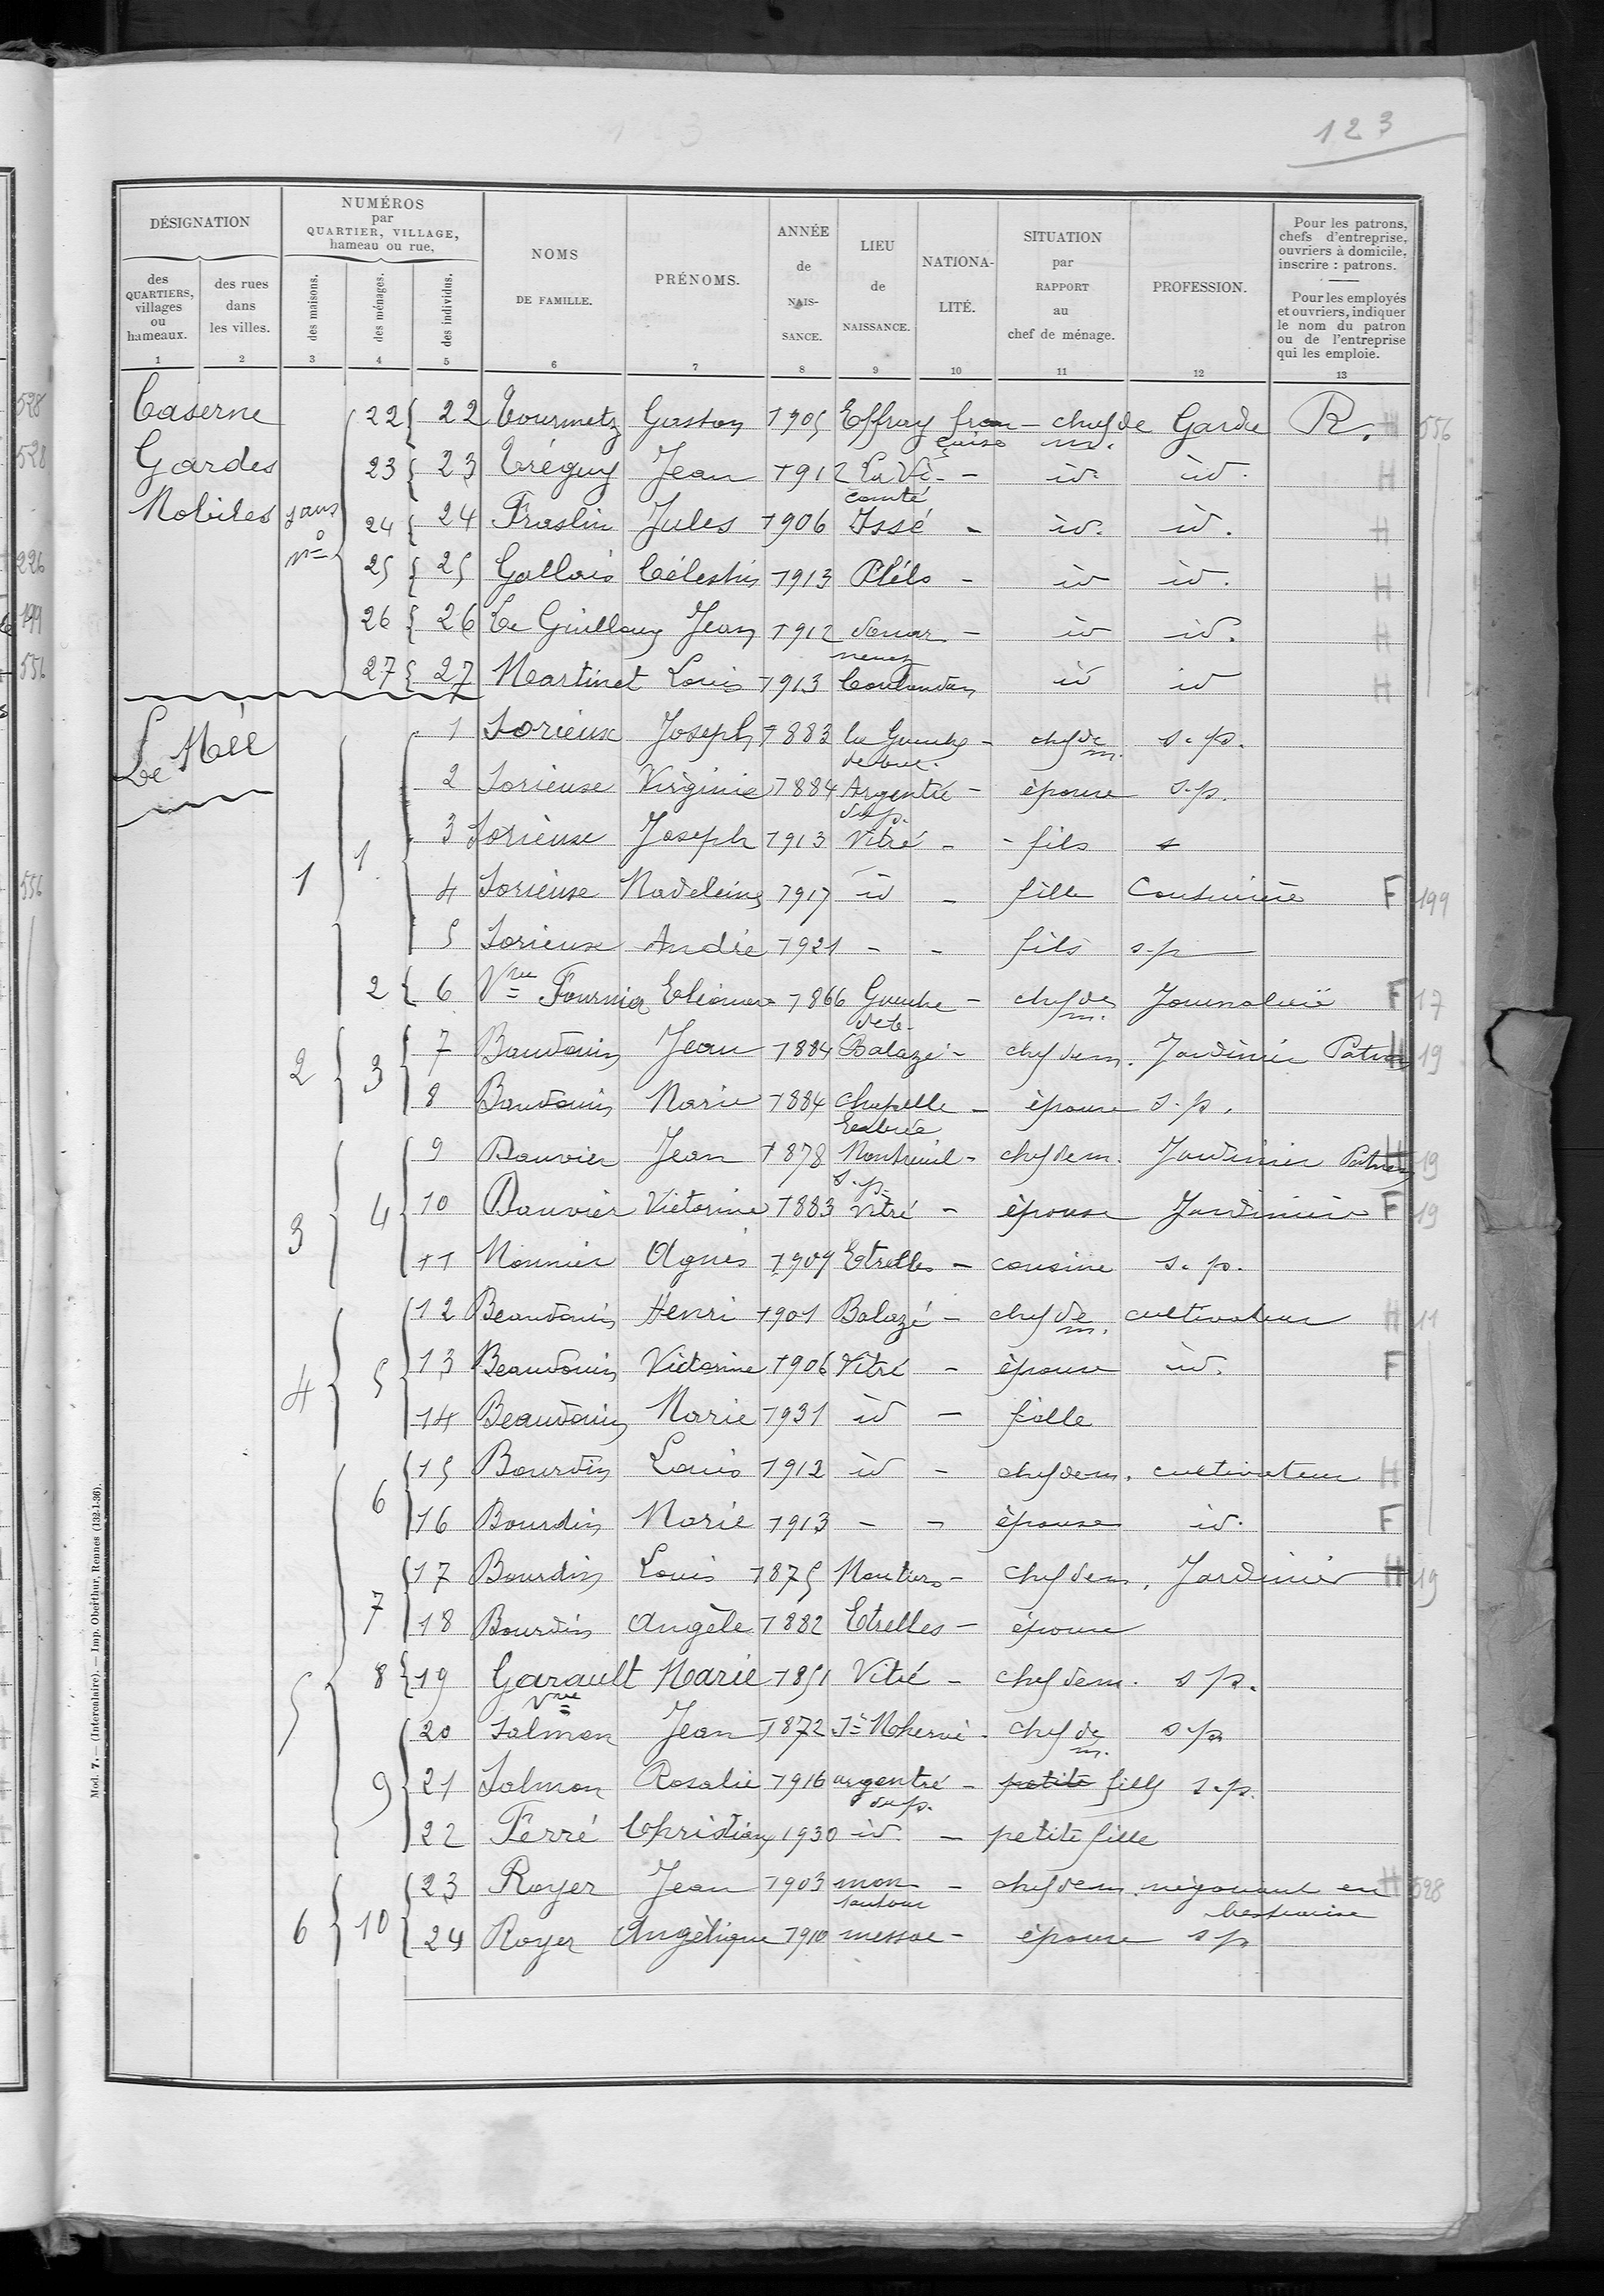 123
DÉSIGNATION
NUMÉROS
par
QUARTIER, VILLAGE,
hameau ou rue.
NOMS
DE FAMILLE.
PRÉNOMS.
ANNÉE
de
NAIS-
SANCE.
LIEU
de
NAISSANCE.
NATIONA-
LITÉ.
SITUATION
par
RAPPORT
au
chef de ménage.
PROFESSION.
Pour les patrons,
chefs d'entreprise,
ouvriers à domicile,
inscrire : patrons.
Pour les employés
et ouvriers, indiquer
le nom du patron
ou de l'entreprise
qui les emploie.
des
QUARTIERS,
villages
ou
hameaux.
des rues
dans
les villes.
des maisons.
des ménages.
des individus.
1 2 3 4 5 6 7 8 9 10 11 12 13
Caserne 22 22 Tourmetz Gaston 1905 Effray fran- chef de Garde R. H 556
çaise m.
Gardes 23 23 Tréguy Jean 1912 La Vi- - id. id. H
comté
Mobiles sans 24 24 Fraslin Jules 1906 Issé - id. id. H
n° 25 25 Gallais Célestin 1913 Plélo - id id. H
26 26 Le Guillouy Jean 1912 douar- - id id. H
nenez
27 27 Martinet Louis 1913 id id H
Le Mée 1 Lorieux Joseph 1883 la Guerche - chef de s.p.
de bre. m.
2 Lorieuse Virginie 1884 Argentré - épouse s.p.
du p.
3 Lorieuse Joseph 1913 Vitré - - fils s
1 1 4 Lorieuse Madeleine 1917 id - fille Couturière F 199
5 Lorieux André 1921 - - fils s.p
2 6 Vve Fournier Eléonore 1866 Guerche - chef de Journalière F 17
de b- m.
2 3 7 Baudouin Jean 1884 Balazé - chef dem. Jardinier Patron H 19
8 Baudouin Marie 1884 chapelle - épouse s.p.
Erbrée
9 Dauvier Jean 1878 Montreuil - chef dem. Jardinier Patron H 19
s.p-
3 4 10 Dauvier Victorine 1883 Vitré - épouse Jardinière F 19
11 Monnier Agnès 1909 Etrelles - cousine s.p.
12 Beaudouin Henri 1901 Balazé - chef de cultivateur H 11
m.
4 5 13 Beaudouin Victorine 1906 Vitré - épouse id. F
14 Beaudouin Marie 1931 id - fille
6 15 Bourdin Louis 1912 id - chef dem. cultivateur H
16 Bourdin Marie 1913 - - épouse id. F
17 Bourdin Louis 1875 Moutiers - chef dem. Jardinier H 19
7 18 Bourdin Angèle 1882 Etrelles - épouse
5 8 19 Garault Marie 1851 Vitré - chef dem. s p.
Vve
20 Salmon Jean 1872 St M'hervé - chef de s.p.
m.
9 21 Salmon Rosalie 1916 argentré - petite fille s.p.
du p.
22 Ferré Christian 1930 id. - petite fille
23 Royer Jean 1903 mon- - chef dem. négociant en H 528
tautour bestiaux
6 10 24 Royer Angélique 1910 messac - épouse s p
Mod. 7. — (Intercalaire). — Imp. Oberthur, Rennes (132-1-36).
528
528
226
199
556
556